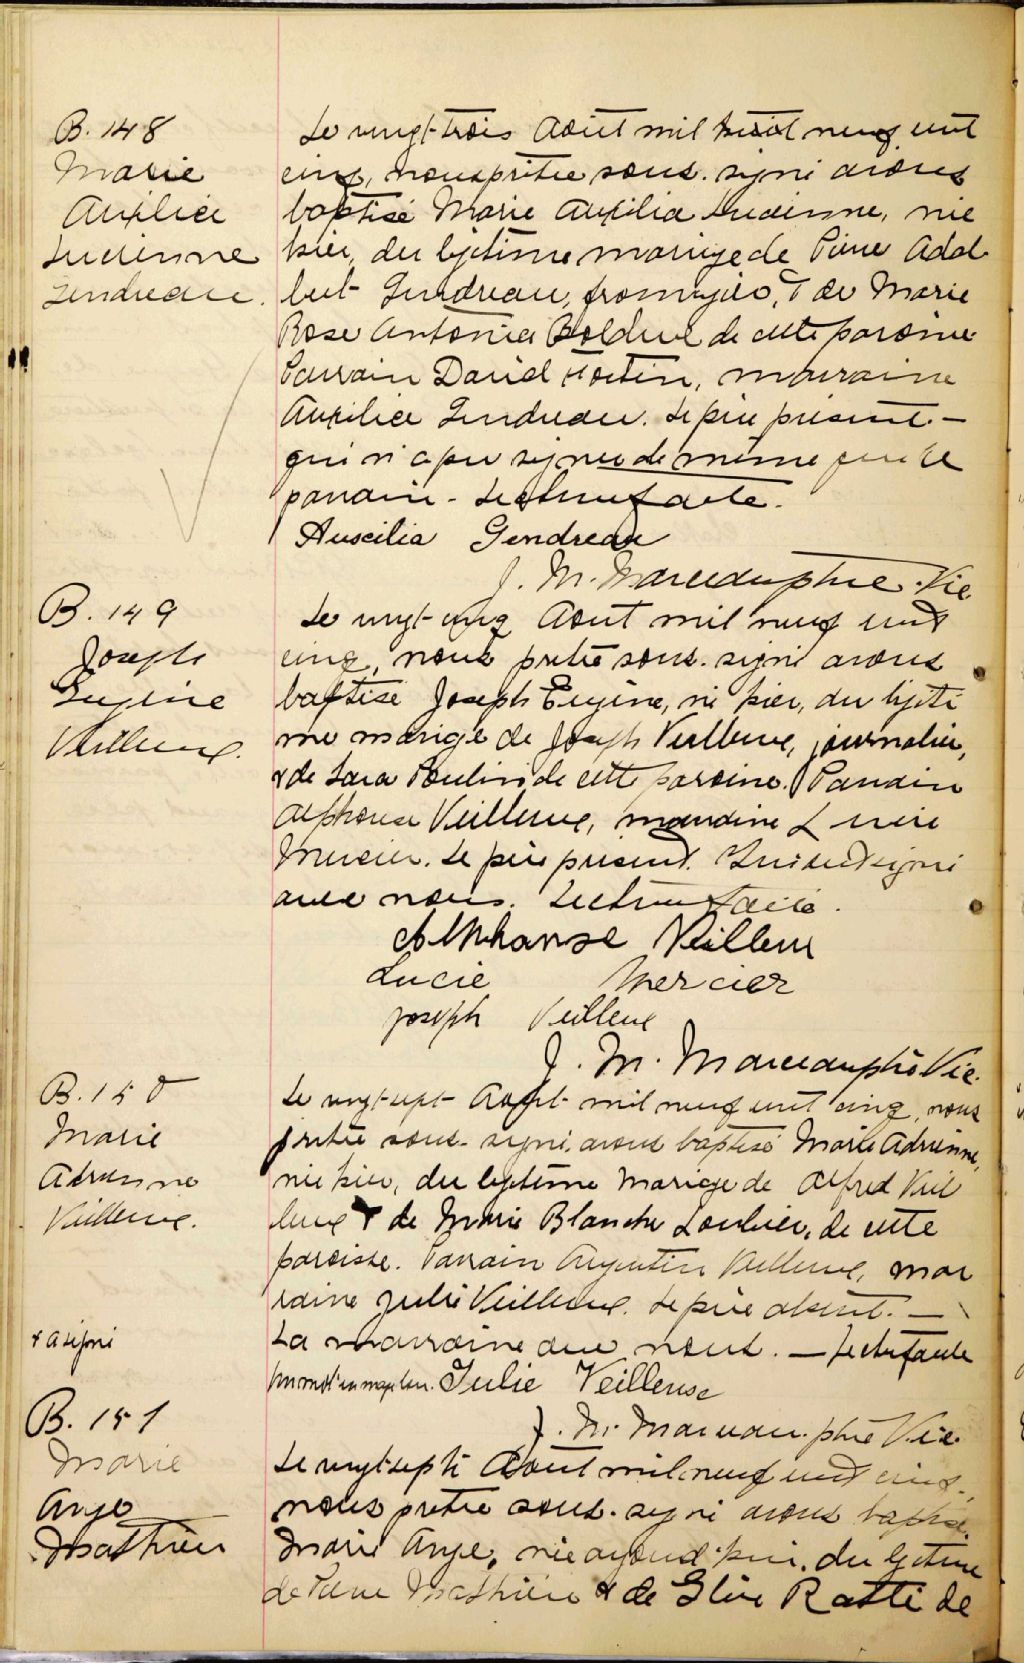 B. 148
Marie
Auxilia
Lucienne
Gendreau.
Le vingt-trois Aout mil neuf cent
cinq, nous prêtre sous-signé avons
baptisé Marie Auxilia Lucienne, née
hier, du légitime mariage de Pierre Adal
bert Gendreau, fromager, & de Marie
Rose Antonia Bolduc de cette paroisse.
Parrain David Fortin, marraine
Auxilia Gendreau. Le père présent. —
qui n'a pu signer de même que le
parrain - Lecture faite.
Auscilia Gendreau
J. M. Marceau ptre. Vic.
B. 149
Joseph
Eugène
Veilleux.
Le vingt-cinq Aout mil neuf cent
cinq, nous prêtre sous-signé avons
baptisé Joseph Eugène, né hier, du légiti
me mariage de Joseph Veilleux, journalier,
& de Lara Poulin de cette paroisse. Parrain
Alphonse Veilleux, marraine Lucie
Mercier. Le père présent. Qui ont signé
avec nous. Lecture faite.
Alphonse Veilleux
Lucie Mercier
Joseph Veilleux
J. M. Marceau ptre Vic.
B. 150
Marie
Adrienne
Veilleux.
Le vingt-sept Aout mil neuf cent cinq, nous
prêtre sous-signé, avons baptisé Marie Adrienne,
née hier, du légitime mariage de Alfred Veil
leux & de Marie Blanche Loubier, de cette
paroisse. Parrain Augustin Veilleux, mar
raine Julie Veilleux. Le père absent. —
+ a signé
La marraine avec nous. — Lecture faite
Julie Veilleuse
J. M. Marceau. ptre Vic.
B. 151
Marie
Ange
Mathieu
Le vingt-sept Aout mil neuf cent cinq,
nous prêtre sous-signé avons baptisé
Marie Ange, née du légitime
de Pierre Mathieu & de Elise Ratté de